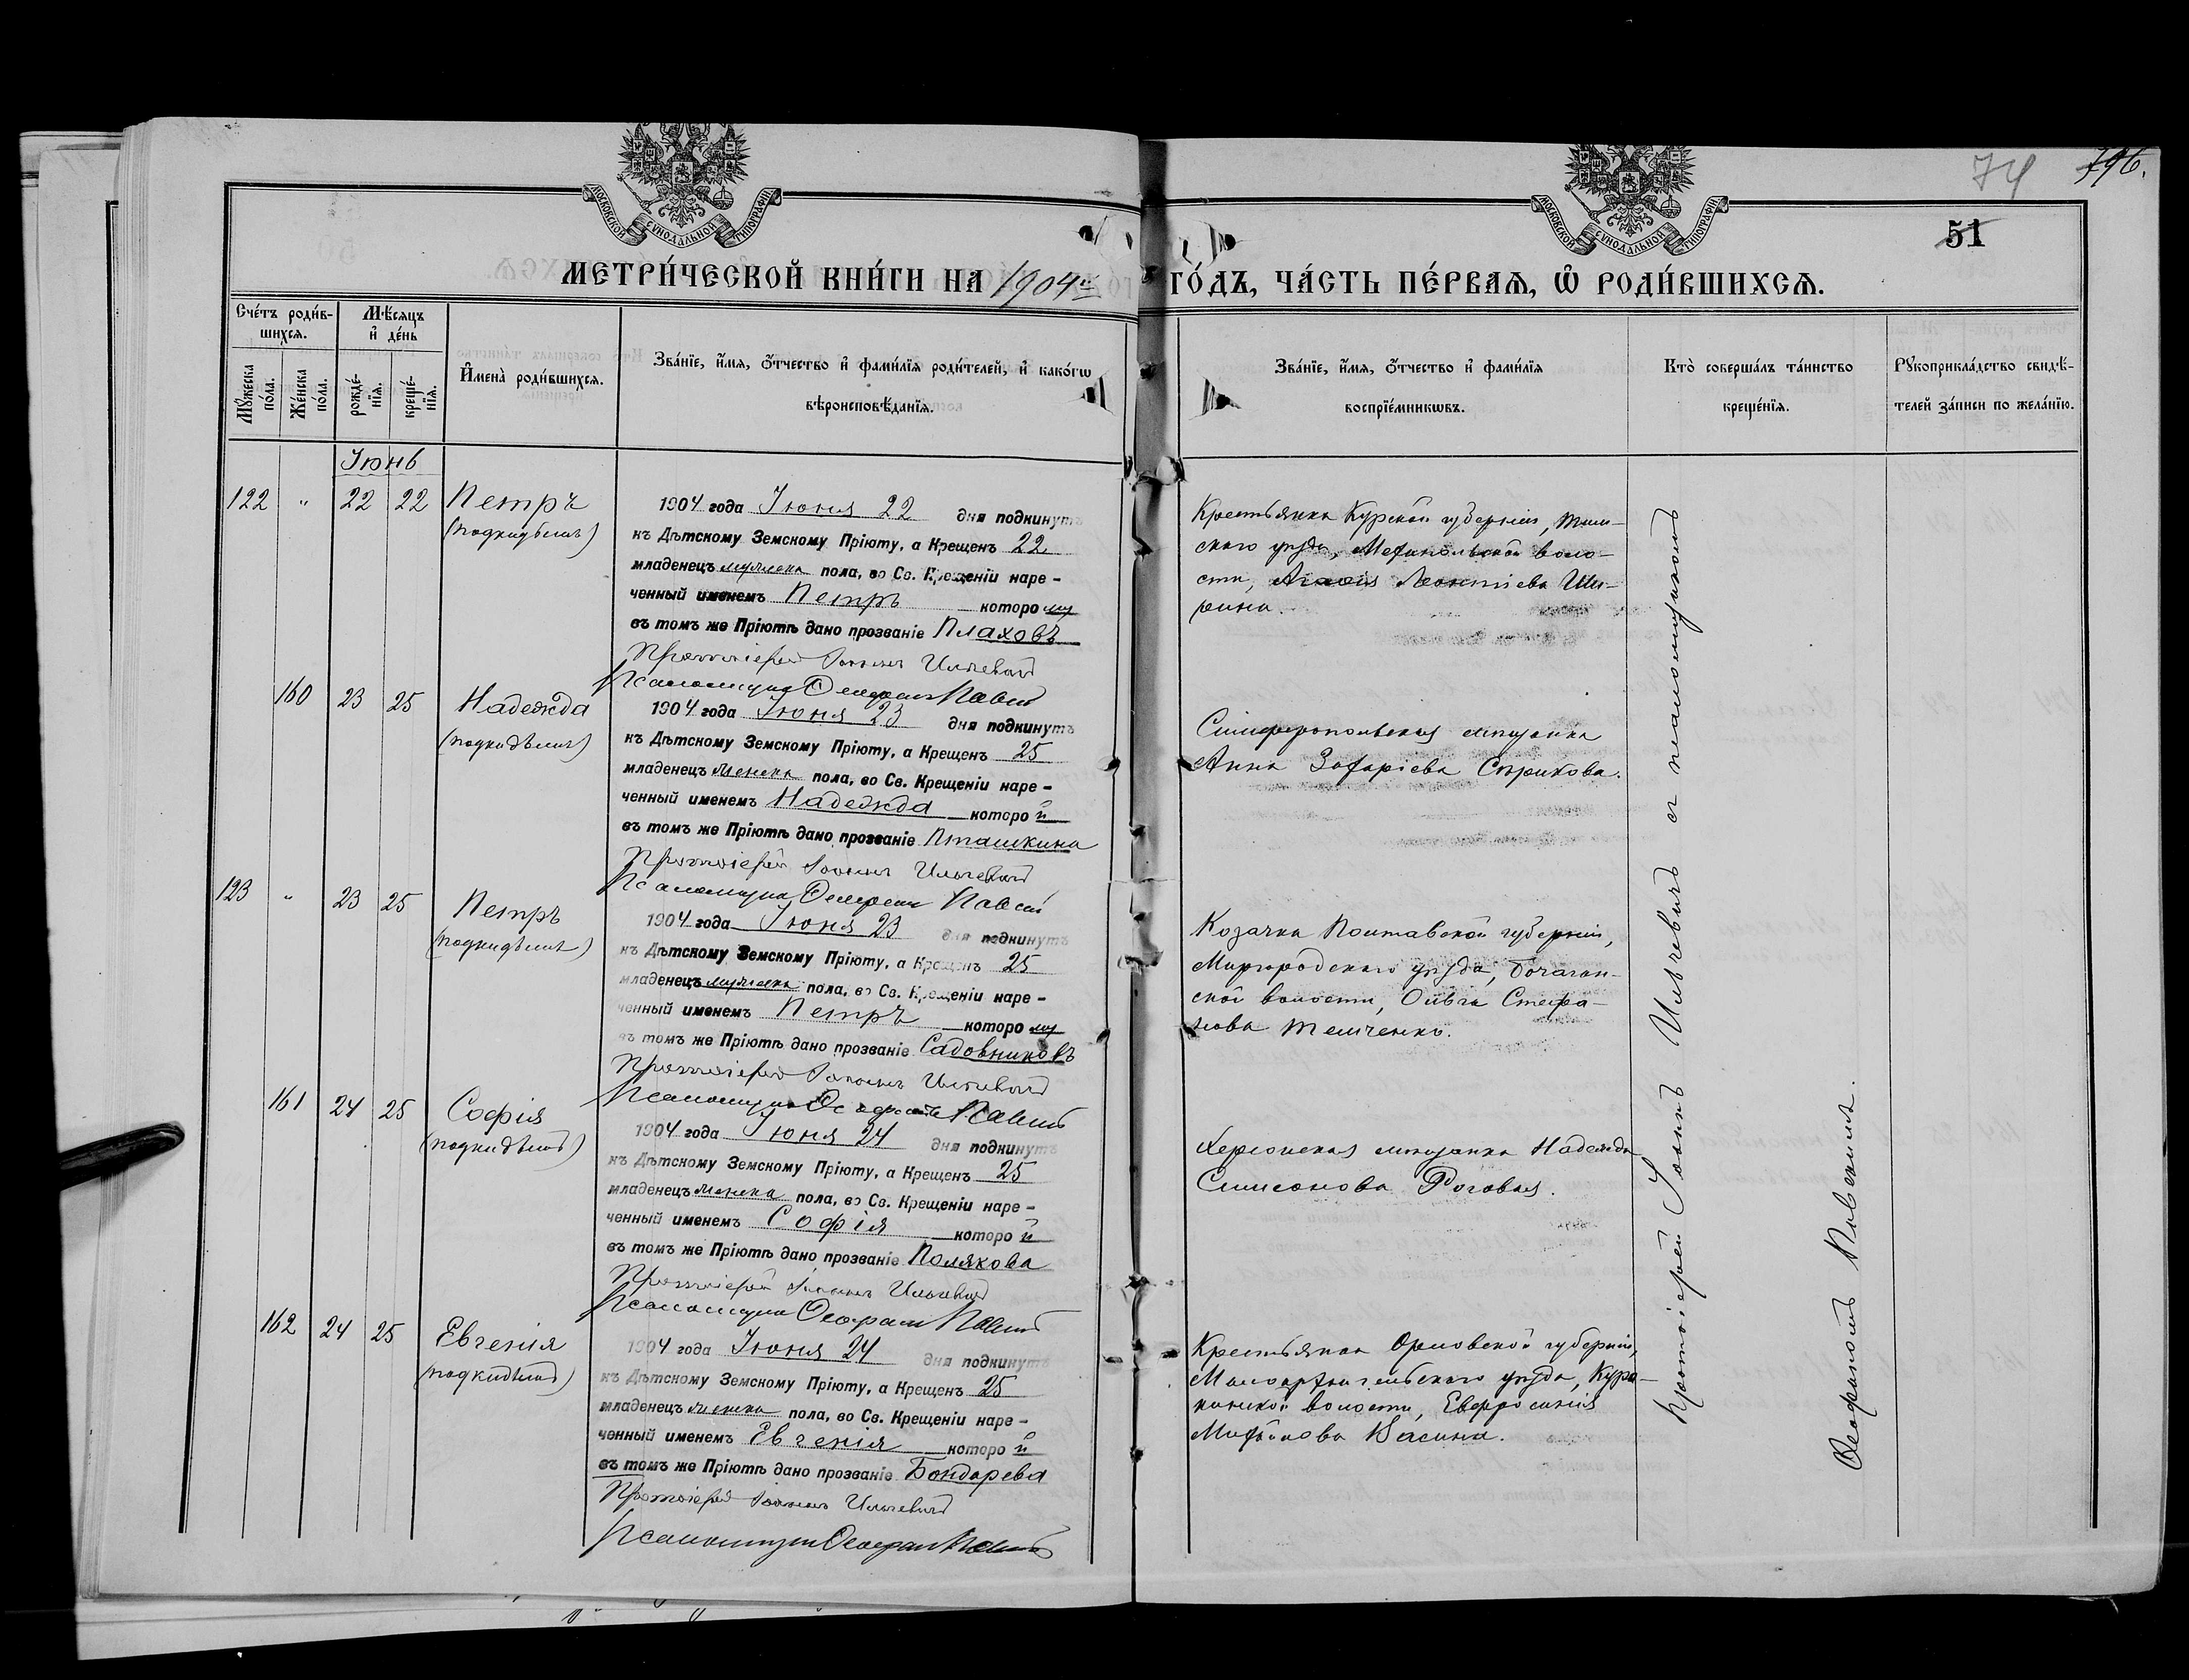 74 796.
51
МОСКОВСКОЙ СѴНОДАЛЬНОЙ ТИПОГРАФІИ
МОСКОВСКОЙ СѴНОДАЛЬНОЙ ТИПОГРАФІИ
МЕТРИ́ЧЕСКОЙ КНИ́ГИ НА 1904й ГО́ДЪ, ЧА́СТЬ ПЕ́РВАѦ, Ѡ҆ РОДИ́ВШИХСѦ.
Сче́тъ роди́в-
шихсѧ.
Мꙋ́жеска по́ла.
Же́нска по́ла.
Мѣ́сѧцъ
и҆ де́нь
рожде́-
нїѧ.
креще́-
нїѧ.
И҆мена̀ роди́вшихсѧ.
Зва́нїе, и҆́мѧ, ѻ҆́тчество и҆ фами́лїѧ роди́телей, и҆ како́гѡ
вѣроисповѣ́данїѧ.
Зва́нїе, и҆́мѧ, ѻ҆́тчество и҆ фами́лїѧ
воспрїе́мникѡвъ.
Кто̀ соверша́лъ та́инство
креще́нїѧ.
Рꙋкоприкла́дство свидѣ́-
телей за́писи по жела́нїю.
Іюнь
122 " 22 22 Петръ
(подкидышъ)
1904 года Іюня 22 дня подкинутъ
къ Дѣтскому Земскому Пріюту, а Крещенъ 22
младенецъ мужска пола, во Св. Крещеніи наре-
ченный именемъ Петръ которому
въ томъ же Пріютѣ дано прозваніе Плаховъ
Протоіерей Іоаннъ Ильчевичъ
Псаломщикъ Ѳеофанъ
Крестьянка Курской губерніи, Тим-
скаго уѣзда, воло-
сти, Леонтіева Ши-
рина.
160 23 25 Надежда
(подкидышъ)
1904 года Іюня 23 дня подкинутъ
къ Дѣтскому Земскому Пріюту, а Крещенъ 25
младенецъ женска пола, во Св. Крещеніи наре-
ченный именемъ Надежда которой
въ томъ же Пріютѣ дано прозваніе Пташкина
Протоіерей Іоаннъ Ильчевичъ
Псаломщикъ Ѳеофанъ
Симферопольская мѣщанка
Анна Захаріева Сѣрикова.
123 " 23 25 Петръ
(подкидышъ)
1904 года Іюня 23 дня подкинутъ
къ Дѣтскому Земскому Пріюту, а Крещенъ 25
младенецъ мужска пола, во Св. Крещеніи наре-
ченный именемъ Петръ которому
въ томъ же Пріютѣ дано прозваніе Садовниковъ
Протоіерей Іоаннъ Ильчевичъ
Псаломщикъ Ѳеофанъ
Козачка Полтавской губерніи,
Миргородскаго уѣзда,
ской волости, Ольга Стефа-
нова Темченко.
161 24 25 Софія
(подкидышъ)
1904 года Іюня 24 дня подкинутъ
къ Дѣтскому Земскому Пріюту, а Крещенъ 25
младенецъ женска пола, во Св. Крещеніи наре-
ченный именемъ Софія которой
въ томъ же Пріютѣ дано прозваніе Полякова
Протоіерей Іоаннъ Ильчевичъ
Псаломщикъ Ѳеофанъ
Херсонская мѣщанка Надежда
Симеонова Роговая.
162 24 25 Евгенія
(подкидышъ)
1904 года Іюня 24 дня подкинутъ
къ Дѣтскому Земскому Пріюту, а Крещенъ 25
младенецъ женска пола, во Св. Крещеніи наре-
ченный именемъ Евгенія которой
въ томъ же Пріютѣ дано прозваніе Бондарева
Протоіерей Іоаннъ Ильчевичъ
Псаломщикъ Ѳеофанъ
Крестьянка Орловской губерніи,
Малоархангельскаго уѣзда, Кура-
кинской волости, Евфросинія
Михайлова Васина.
Протоіерей Іоаннъ Ильчевичъ съ псаломщикомъ
Ѳеофаномъ